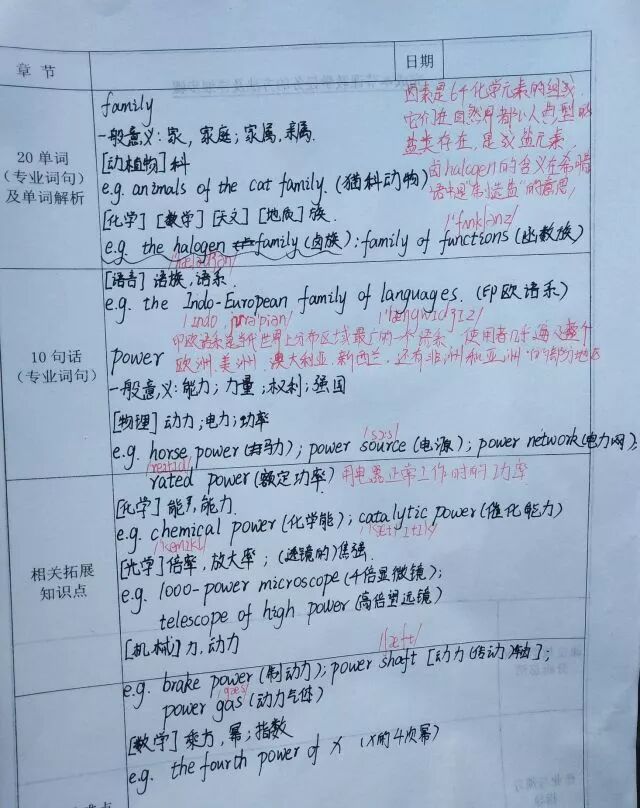 章 节
日期
20 单词
(专业词句)
及单词解析
family
一般意义: 家, 家庭; 家属, 亲属.
[动植物] 科
e.g. animals of the cat family. (猫科动物)
[化学] [数学] [天文] [地质] 族.
e.g. the halogen family (卤族); family of functions (函数族)
因素是6个化学元素的组成,
它们在自然界都以典型的
盐类存在, 是成盐元素,
卤halogen的含义在希腊
语中是"制造盐"的意思,
10 句话
(专业词句)
[语言] 语族, 语系.
e.g. the Indo-European family of languages. (印欧语系)
印欧语系是当代世界上分布区域最广的一个语系, 使用者几乎遍及整个
欧洲、美洲、澳大利亚、新西兰, 还有非洲和亚洲的部分地区
power
一般意义: 能力; 力量; 权利; 强国
[物理] 动力; 电力; 功率
e.g. horse power (马力); power source (电源); power network (电力网);
rated power (额定功率) 用电器正常工作时的功率
相关拓展
知识点
[化学] 能, 能力.
e.g. chemical power (化学能); catalytic power (催化能力)
[光学] 倍率, 放大率; (透镜的) 焦强.
e.g. 1000-power microscope (千倍显微镜);
telescope of high power (高倍望远镜)
[机械] 力, 动力
e.g. brake power (制动力); power shaft [动力(传动)轴];
power gas (动力气体)
[数学] 乘方, 幂; 指数
e.g. the fourth power of x (x的4次幂)